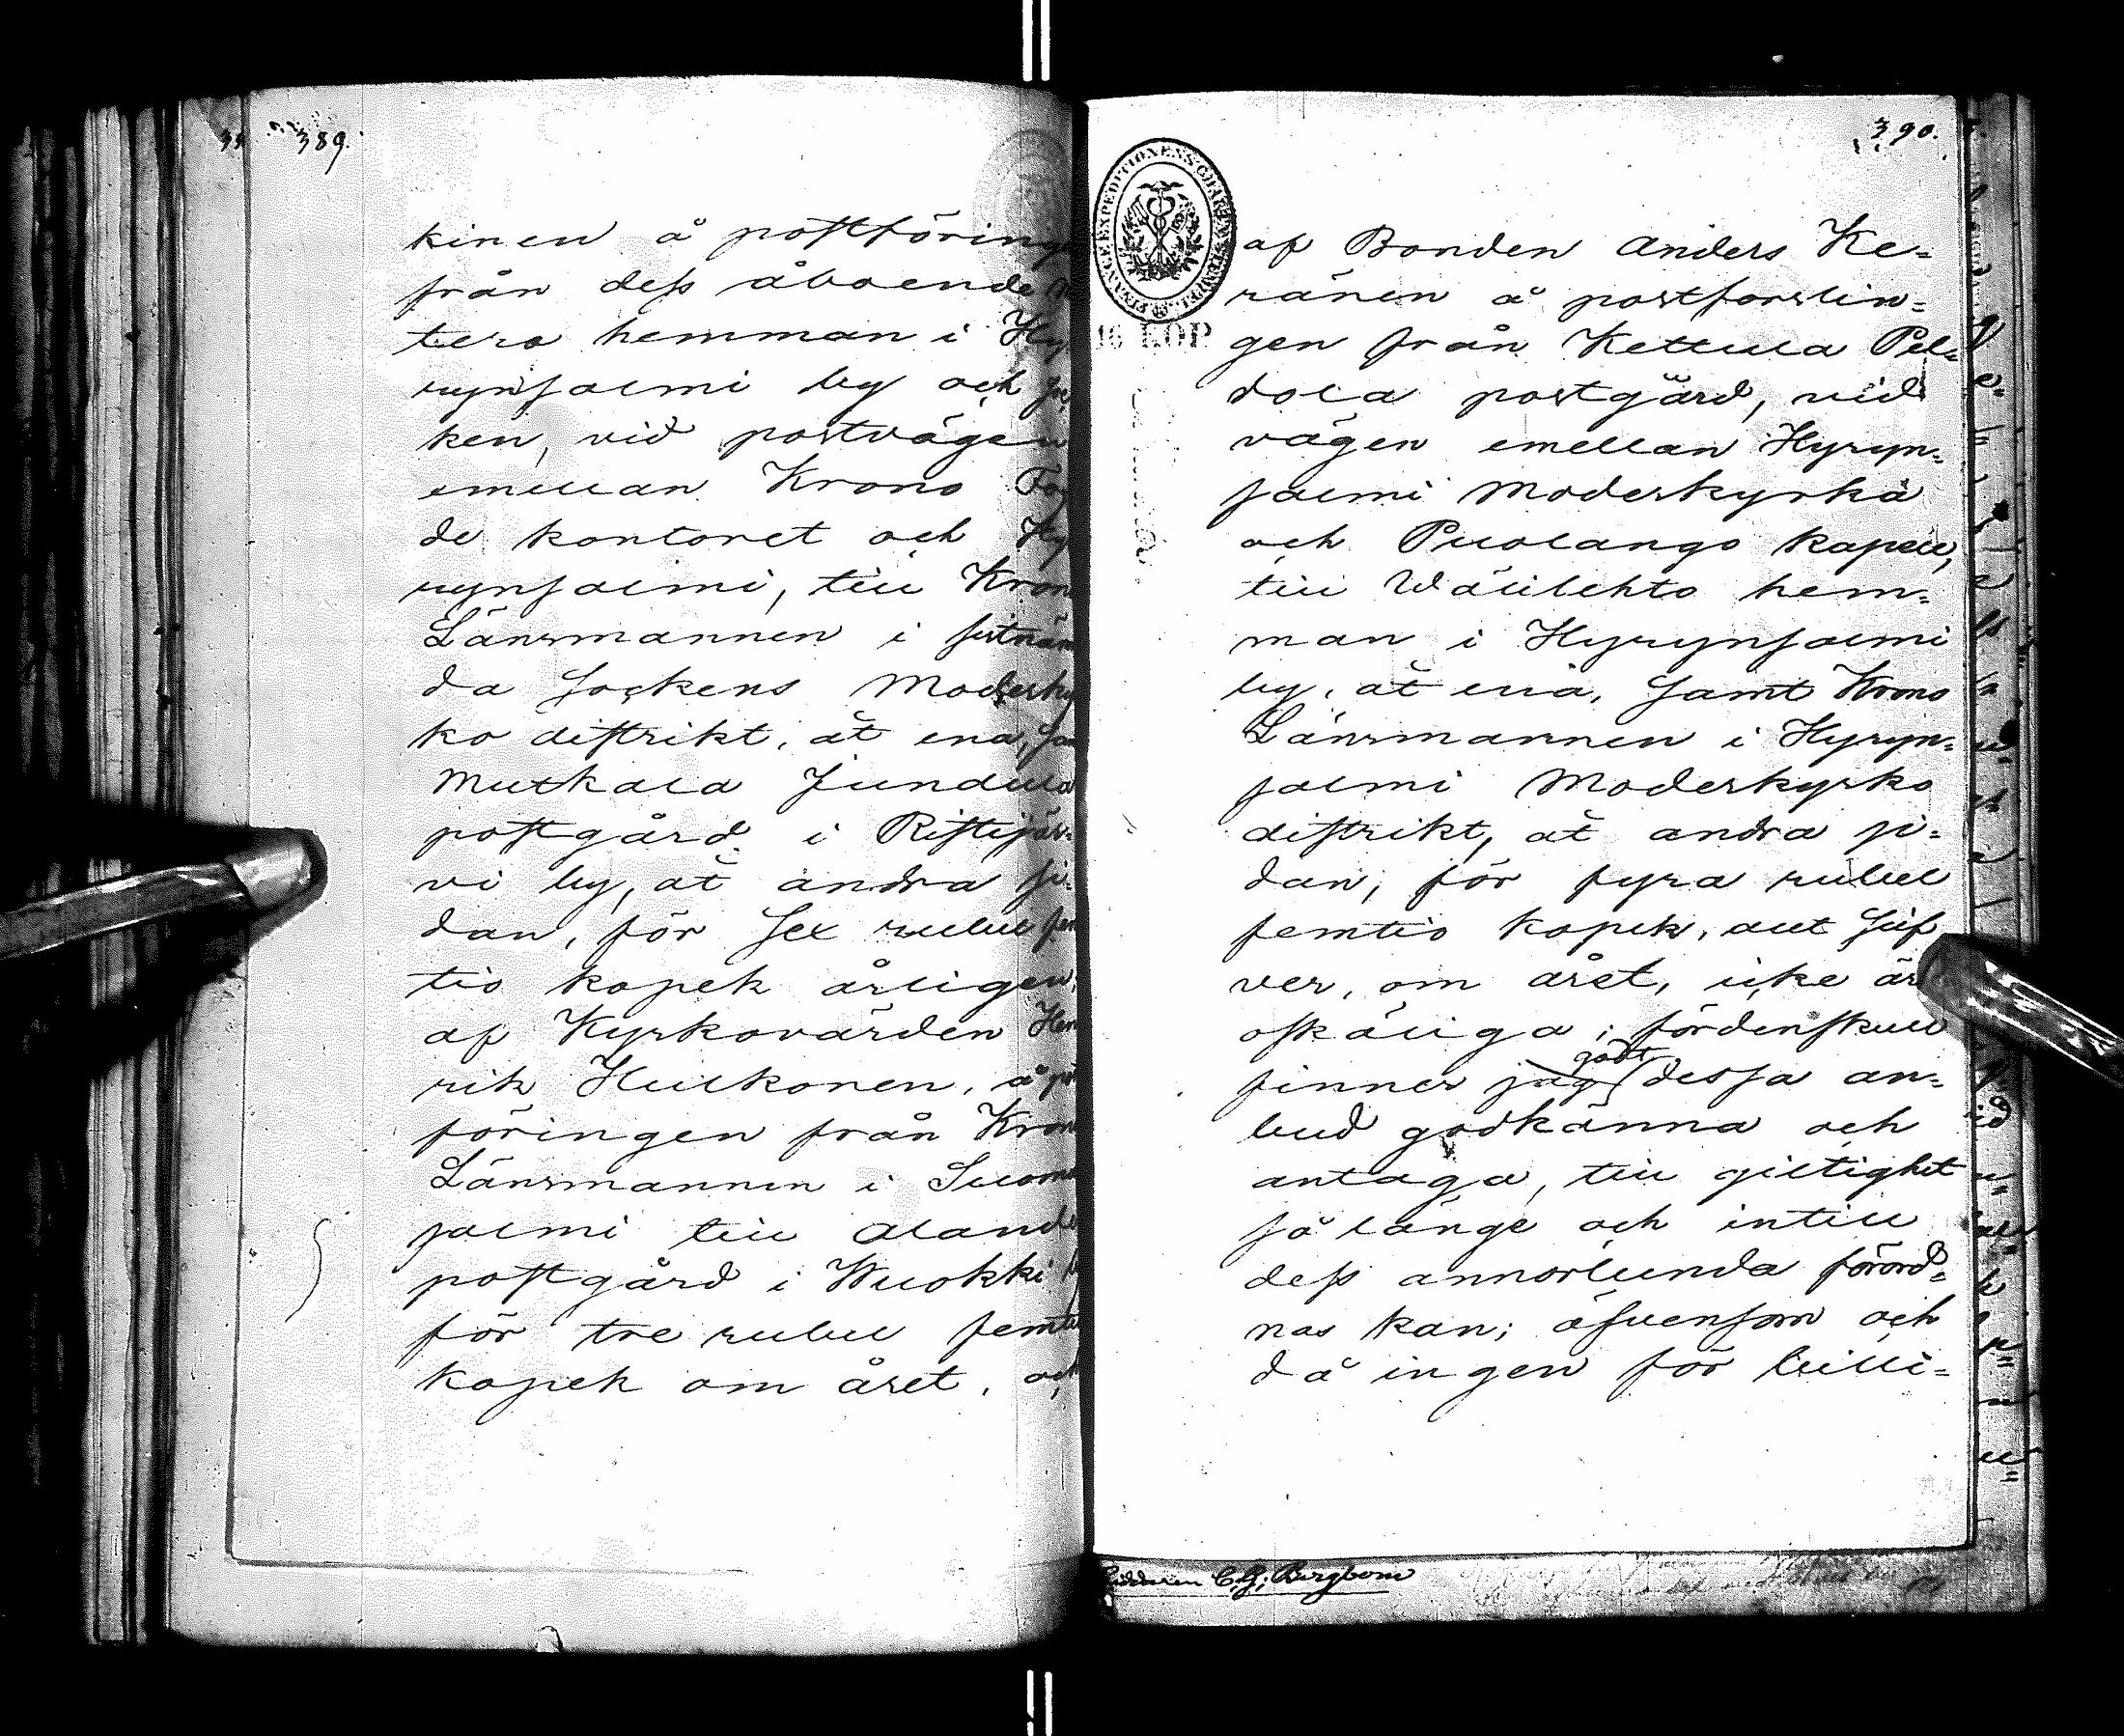 389.
kinen å postföringe
från dess åboende
tero hemman i Hy
rynsalmi by och
ken, vid postvägen
emellan Krono Fog
de kontoret och Hy
rynsalmi, till Krono
Länsmannen i sistnäm
da Sockens Moderky
ko distrikt, åt ena,
Mutkala Jundula
postgård i Ristijär-
vi by, åt andra si-
dan, för Sex rubel fem
tio kopek årligen,
af Kyrkovärden Hen
rik Hulkonen, å
föringen från Krono
Länsmannen i Suomu
salmi till Aland
postgård i Wuokki
för tre rubel femtio
kopek om året, och
390.
STEND.EXPEDITIONENS CHARTÆ STEMPEL
16 KOP
af Bonden Anders Ke-
ränen å postforslin-
gen från Kettula Pel-
dola postgård, vid
vägen emellan Hyryn-
salmi Moderkyrka
och Puolango kapell,
till Wäülehto hem-
man i Hyrynsalmi
by, åt ena, Samt Krono
Länsmannen i Hyryn-
salmi Moderkyrko
distrikt, åt andra si-
dan, för fyra rubel
femtio kopek, allt Silf
ver, om året, icke är
oskäliga; fördenskull
finner jag godt dessa an-
bud godkänna och
antaga, till giltighet
så länge och intill
dess annorlunda förord-
nas kan; äfvensom och
då ingen för billi-
Ridderen C. G. Bergbom